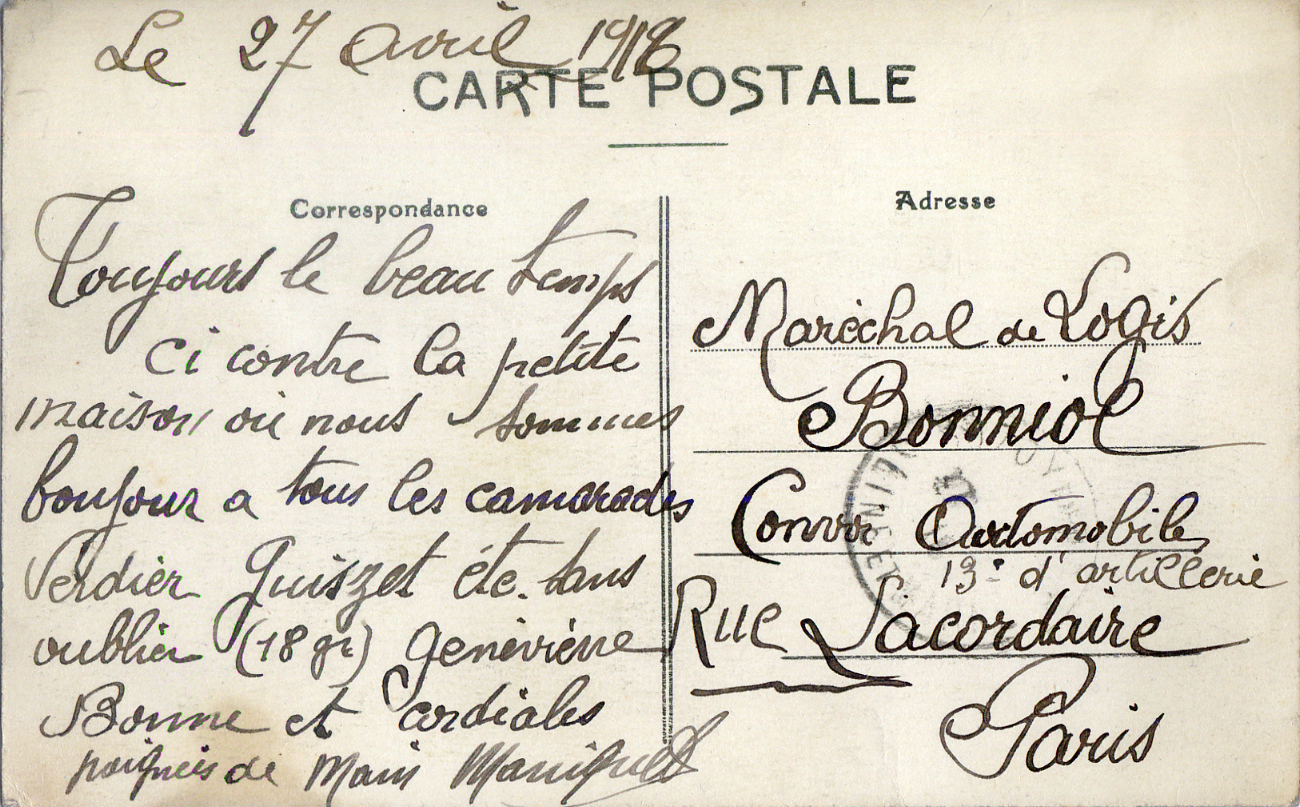 Le 27 avril 1918
CARTE POSTALE
Correspondance
Toujours le beau temps
ci contre la petite
maison où nous sommes
bonjour a tous les camarades
Verdier Guiszet etc. sans
oublier (18 gr) Geneviève
Bonne et cordiales
poignées de Main
Adresse
Maréchal de Logis
Bonniol
Convoi Automobile
13e d'artillerie
Rue Lacordaire
Paris